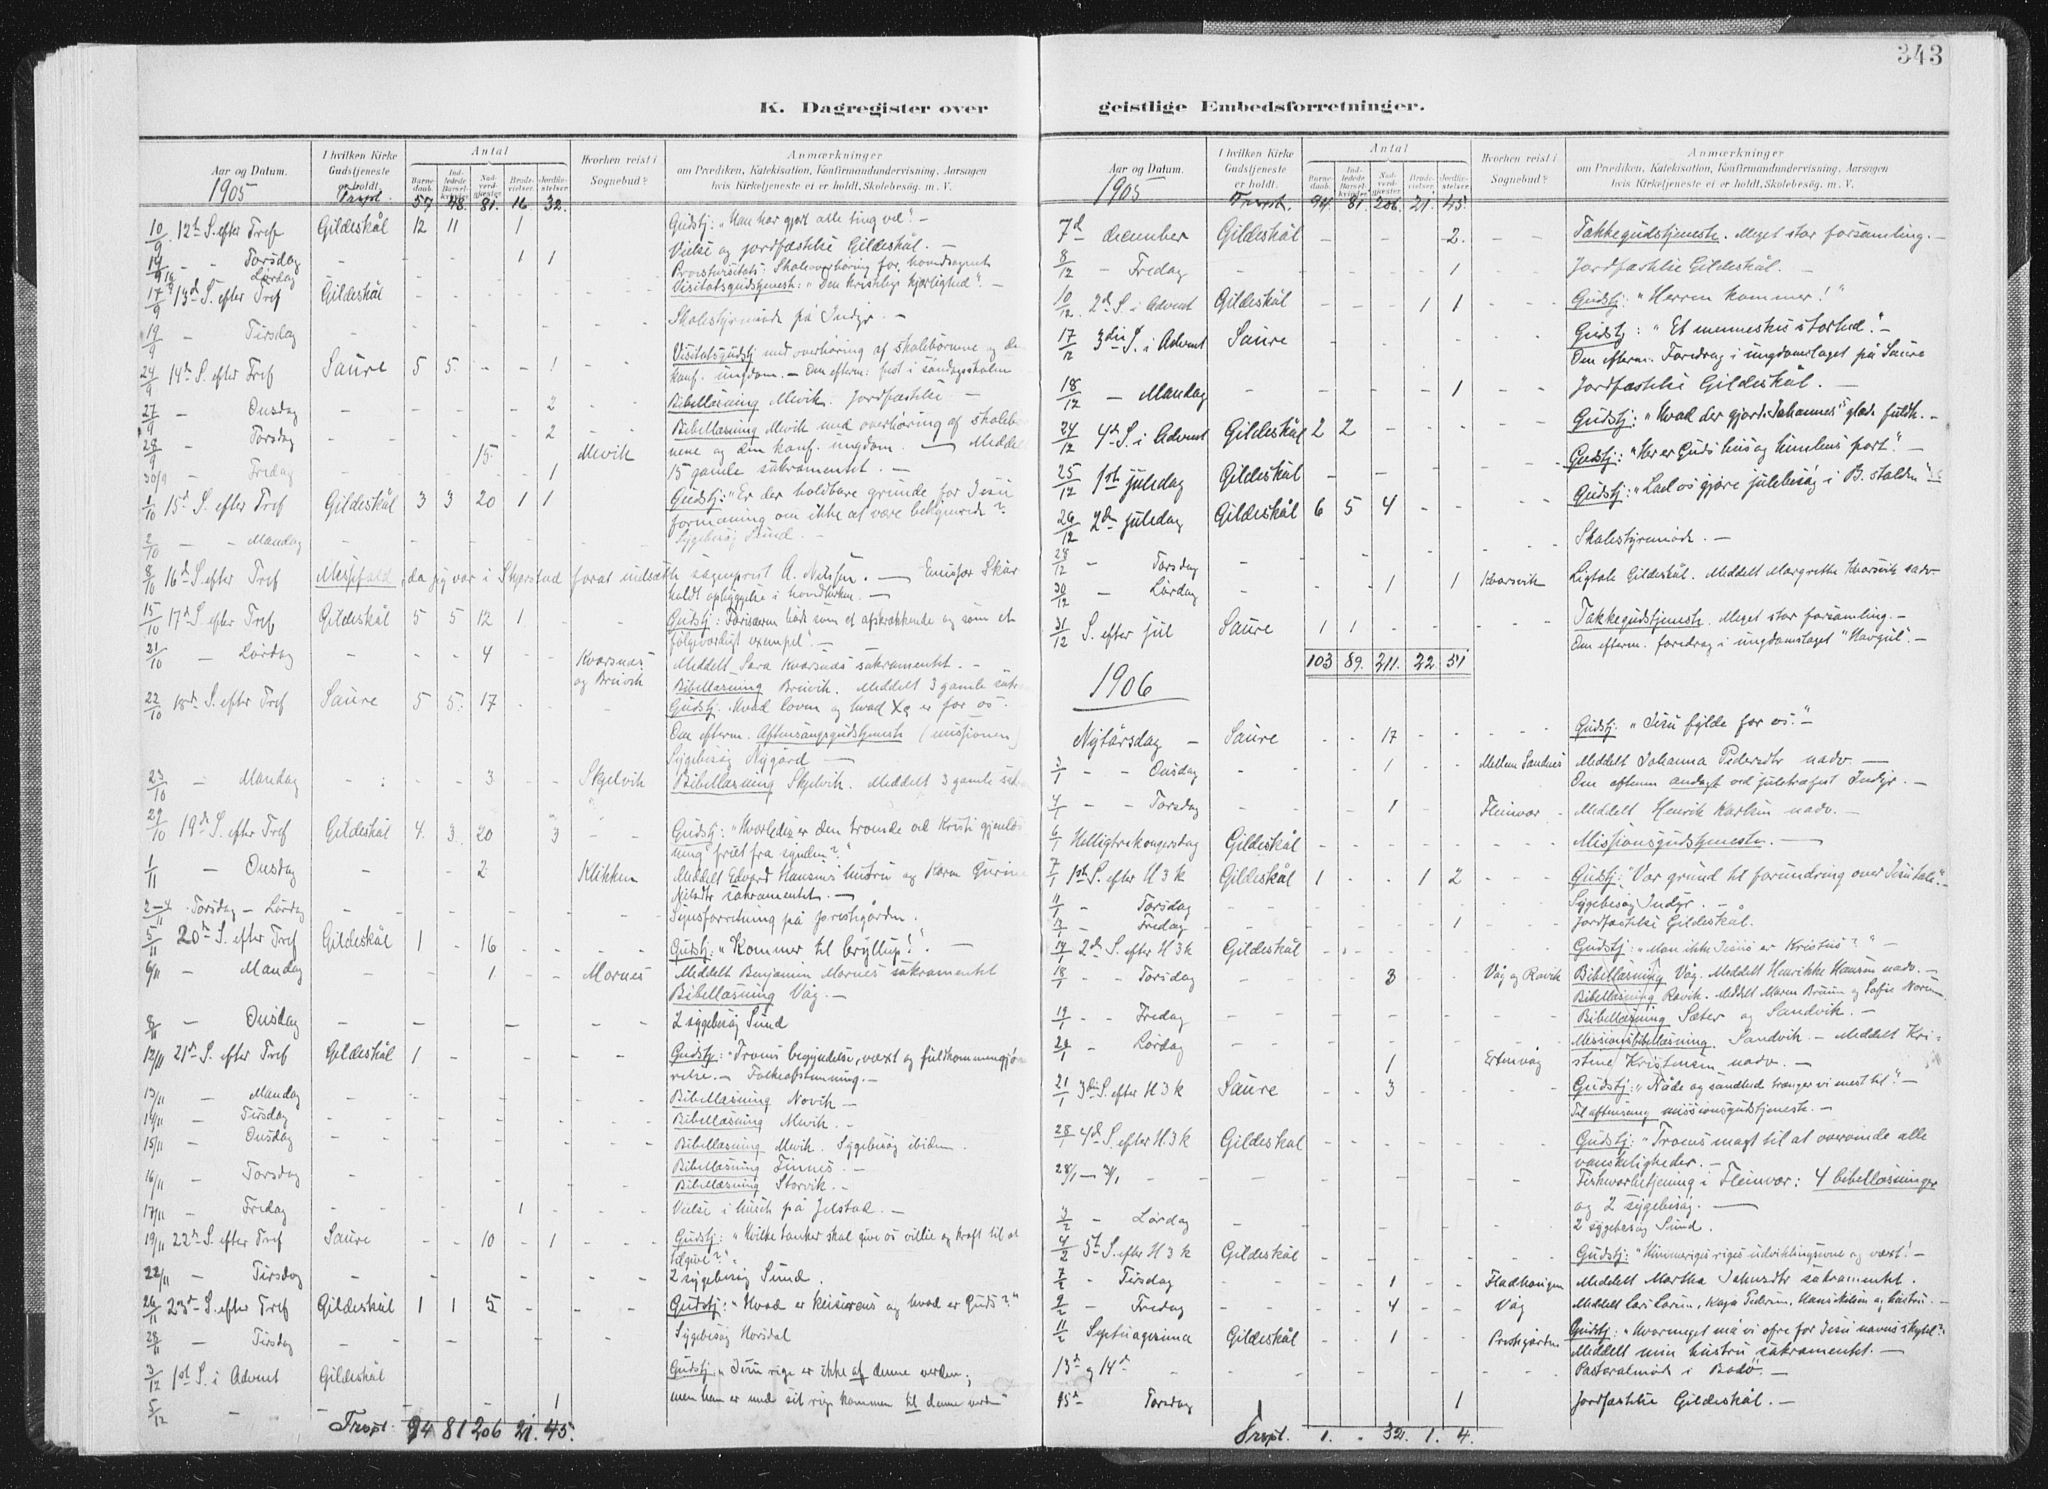 343
K. Dagregister over
geistlige Embedsforretninger.
Aar og Datum.
I hvilken Kirke Gudstjeneste er holdt.
Antal
Barnedaab.
Indledede Barselkvinder.
Nadverdgjester.
Brudevielser.
Jordfæstelser
Hvorhen reist i Sognebud?
Anmærkninger
om Prædiken, Katekisation, Konfirmandundervisning, Aarsagen
hvis Kirketjeneste ei er holdt, Skolebesøg. m. V.
1905 Trspt. 57 48. 81. 16 32.
10/9 12te S. efter Tref Gildeskål 12 11 1 Gudstj: "Han har gjort alle ting vel". -
14/9 - Torsdag - - - 1 1 Vielse og jordfæstelse Gildeskål. -
Lørdag Skoleoverhøring for hovedsognet
17/9 13de S. efter Tref Gildeskål - - - - - Visitatsgudstjeneste: "Den kristelige kjærlighed". -
19/9 - Tirsdag - - - - - Skolestyremøde på Indyr. -
24/9 14de S. efter Tref Saure 5 5 - - 1 Visitatsgudstj med overhøring af skolebørnene og de
konf. ungdom. - Om efterm: fest i søndagsskolen
27/9 - Onsdag - - - - 2 Bibellæsning Mevik. Jordfæstelse -
28/9 - Torsdag - - - - 2 Bibellæsning Mevik med overhøring af skolebør
nene og den konf. ungdom. - Meddel
15 Mevik 15 gamle sakramentet. -
30/9 - Fredag - - - - 1
1/10 15de S. efter Tref Gildeskål 3 3 20 1 1 Gudstj: "Er der holdbare grunde for Jesu
formaning om ikke at være bekymrede?"
2/10 - Mandag - - - - - Sygebesøg Sund. -
8/10 16de S. efter Tref Messefald, da jeg var i Skjerstad forat indsætte sogneprest A. Nilsen. - Emissær Skår
holdt opbyggelse i hovedkirken. -
15/10 17de S. efter Tref Gildeskål 5 5 12 1 - Gudstj: Farisæerne både som et afskrækkende og som et
følgeværdigt exempel". -
21/10 - Lørdag - - - 4 - - Kvarsnæs og Breivik Meddelt Sara Kvarsnæs sakramentet. -
Bibellæsning Breivik. Meddelt 3 gamle sakr
22/10 18de S. efter Tref Saure 5 5 17 - - Gudstj. Hvad loven og hvad Xs er for os".
Om efterm. Aftensangsgudstjeneste (missionen)
Sygebesøg Nygård -
23/10 - Mandag - - - 3 - - Skjelvik Bibellæsning Skjelvik. Meddelt 3 gamle sakr
29/10 19de S. efter Tref Gildeskål 4. 3. 20 3 Gudstj: "Hvorledes er den troende ved Kristi gjenløs
ning friet fra synden?"
1/11 - Onsdag - - - 2 - - Klikken Meddelt Edvard Hansens hustru og Karen Gurine
Nilsdtr sakramentet. -
2-4/11 Torsdag - Lørdag - - - - - Synsforretning på prestegården.
5/11 20de S. efter Tref Gildeskål 1 - 16 - - Gudstj: "Kommer til bryllup!". -
6/11 - Mandag - - - 1 - - Mornes Meddelt Benjamin Mornes sakramentet
Bibellæsning Våg. -
8/11 - Onsdag - - - - - 2 sygebesøg Sund
12/11 21de S. efter Tref Gildeskål 1 - - - - Gudstj: "Troens begyndelse, vækst og fuldkommengjø
relse. - Folkeafstemning. -
13/11 - Mandag - - - - - Bibellæsning Novik -
14/11 - Tirsdag - - - - - Bibellæsning Mevik. -
15/11 - Onsdag - - - - - Bibellæsning Mevik. Sygebesøg ibidem.
Bibellæsning Finnes. -
16/11 - Torsdag - - - - - Bibellæsning Storvik. -
17/11 - Fredag - - - 1 - Vielse i huset på Jelstad. -
19/11 22de S. efter Tref Saure - - 10 - 1 Gudstj: "Hvilke tanker skal give os villie og kraft til at
tilgive?".
22/11 - Tirsdag - - - - - 2 sygebesøg Sund.
26/11 23de S. efter Tref Gildeskål 1 1 5 - - Gudstj: "Hvad er keiserens og hvad er Guds?"
28/11 - Tirsdag - - - - - Sygebesøg Horsdal
3/12 1ste S. i Advent Gildeskål Gudstj: "Jesu rige er ikke af denne verden;
5/12 - - - - - 1 men han er med sit rige kommen til denne verden"
Trspt. 94 81 206 21. 45.
Aar og Datum.
I hvilken Kirke Gudstjeneste er holdt.
Antal
Barnedaab.
Indledede Barselkvinder.
Nadverdgjester.
Brudevielser.
Jordfæstelser
Hvorhen reist i Sognebud?
Anmærkninger
om Prædiken, Katekisation, Konfirmandundervisning, Aarsagen
hvis Kirketjeneste ei er holdt, Skolebesøg. m. V.
1905 Trspt. 94. 81. 206. 21. 45.
7de december Gildeskål - - - - 2. - - Takkegudstjeneste. Meget stor forsamling. -
8/12 - Fredag 1 Jordfæstelse Gildeskål. -
10/12 2de S. i Advent Gildeskål - - - 1 1 - - Gudstj: "Herren kommer!"
17/12 3die S. i Advent Saure - - - - - Gudstj: "Et menneskes storhed". -
Om efterm. Foredrag i ungdomslaget på Saure
18/12 - Mandag - - - - 1 - - Jordfæstelse Gildeskål. -
24/12 4de S. i Advent Gildeskål 2 2 - - - - - Gudstj: "Hvad der gjorde Johannes' glæde fuldk. -
25/12 1ste juledag Gildeskål - - - - - Gudstj: "Her er Guds hus og himlens port". -
26/12 2den juledag Gildeskål 6 5 4 - - - - Gudstj: "Lad os gjøre julebesøg i B. stalden"
28/12 - Torsdag - - - - - Skolestyremøde. -
30/12 - Lørdag - - - 1 1 Kvarsvik Ligtale Gildeskål. Meddelt Margrethe Kvarsvik nadv.
31/12 S. efter jul Saure 1 1 - - - - - Takkegudstjeneste. Meget stor forsamling. -
Om efterm. foredrag i ungdomslaget "Havgul". -
103 89. 211. 22 51
1906
Nytårsdag - Saure - - 17 - - - - Gudstj: "Jesu fylde for os". -
3/1 - - Onsdag - - - 1 - - Mellem Sandnes Meddelt Johanna Pedersdtr nadv. -
Om efterm andagt ved juletræfest Indyr. -
4/1 - - Torsdag - - - 1 - - Fleinvær - Meddelt Henrik Karlsen nadv. -
6/1 Helligtrekongersdag Gildeskål - - - - - Missionsgudstjeneste. -
7/1 1ste S. efter H 3 k Gildeskål 1 - - 1 2 - - Gudstj: "Vor grund til forundring over Jesu tale". -
11/1 - Torsdag - - - - - Sygebesøg Indyr. -
12/1 - Fredag - - - - 1 - - Jordfæstelse Gildeskål.
14/1 2den S. efter H 3 k Gildeskål - - - - - Gudstj: "Mon ikke Jesus er Kristus?" -
18/1 - Torsdag - - - 3 - - Våg og Rævik Bibellæsning Våg. Meddelt Henrikke Hansen nadv. -
Bibellæsning Rævik. Meddelt Maren Bruun og Sofie Norum
19/1 - Fredag - - - - - Bibellæsning Sæter og Sandvik. -
20/1 - Lørdag - - - 1 - - Ertenvåg Missionsbibellæsning Sandvik - Meddelt Kri-
stine Kristensen nadv. -
21/1 3die S. efter H 3 k Saure - - 3 - - - - Gudstj: "Nåde og sandhed trænger vi mest til". -
Til aftensang missionsgudstjeneste. -
28/1 4de S. efter H. 3 k Gildeskål - - - - - Gudstj: "Troens magt til at overvinde alle
vanskeligheder. -
28/1 - 3/1 - - - - - Fiskværbetjening i Fleinvær: 4 bibellæsninger
og 2 sygebesøg. -
3/2 - Lørdag - - - - - 2 sygebesøg Sund.
4/2 5te S. efter H 3 k Gildeskål - - - - - Gudstj: "Himmeriges riges udviklingsevne og vækst! -
7/2 - Tirsdag - - - 1 - - Fladhaugen Meddelt Martha Johnsdtr sakramentet.
9/2 - Fredag - - - 4 - - Våg Meddelt Lars Larsen, Kaja Pedersen, Hans Nilsen og hustru. -
11/2 Septuagesima Gildeskål - - 1 - - Prestegården Gudstj: "Hvormeget må vi ofre for Jesu navns skyld?"
Meddelt min hustru sakramentet. -
13de og 14de - - - - - Pastoralmøde i Bodø. -
15de Torsdag 1 Jordfæstelse Gildeskål. -
Trspt. 1. - 32. 1. 4.